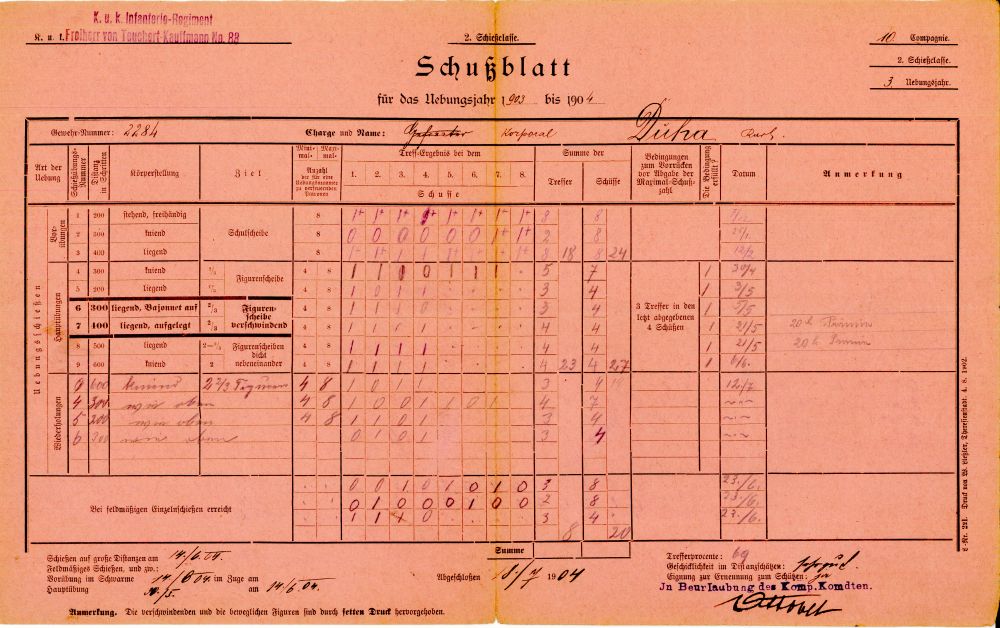 K. u. k. Infanterie-Regiment
K. u. k. Freiherr von Teuchert-Kauffmann No. 88
2. Schießclasse.
10. Compagnie.
2. Schießclasse.
3. Uebungsjahr.
Schußblatt
für das Uebungsjahr 1903 bis 1904
Gewehr-Nummer: 2284 Charge und Name: Gefreiter Korporal Duha Karl.
Art der Uebung Schießübungs-Nummer Distanz in Schritten Körperstellung Ziel Mini-mal- Maxi-mal- Anzahl der für eine Uebungsnummer zu verfeuernden Patronen Treff-Ergebnis bei dem 1. 2. 3. 4. 5. 6. 7. 8. Schusse Summe der Treffer Schüsse Bedingungen zum Vorrücken vor Abgabe der Maximal-Schuß-zahl Die Bedingung erfüllt? Datum Anmerkung
Uebungsschießen
Vor-übungen
1 200 stehend, freihändig 8 1+ 1+ 1+ 1+ 1+ 1+ 1+ 1+ 8 8
2 300 kniend Schulscheibe 8 0 0 0 0 0 0 1+ 1+ 2 8
3 400 liegend 8 8 18 8 24 12/2
Hauptübungen
4 300 kniend Figurenscheibe 4 8 1 1 1 0 1 1 1 . 5 7 1 30/4
5 200 liegend 4 8 1 0 1 1 3 4 1 3/5
6 300 liegend, Bajonnet auf 2/3 Figuren-scheibe verschwindend 4 8 1 1 1 0 3 4 3 Treffer in den letzt abgegebenen 4 Schüßen 1 5/5
7 400 liegend, aufgelegt 2/3 4 8 1 1 1 1 4 4 1 21/5
8 500 liegend Figurenscheiben dicht nebeneinander 4 8 1 1 1 1 4 4 1 21/5
9 600 kniend 2 4 8 1 1 1 1 4 23 4 27 1 6/6.
Wiederholungen
9 600 kniend 2 2/3 Figuren 4 8 1 0 1 1 3 4 12/7
4 300 wie oben 4 8 1 0 0 1 1 0 1 4 7
5 200 wie oben 4 8 1 1 0 1 3 4
6 300 wie oben 0 1 0 1 3 4
Bei feldmäßigen Einzelschießen erreicht
0 0 1 0 1 0 1 0 3 8 23./6.
0 1 0 0 0 1 0 0 2 8 23./6.
1 1 1 0 3 4 23./6.
8 20
Summe
Schießen auf große Distanzen am 14./6.04.
Feldmäßiges Schießen, und zw.:
Vorübung im Schwarme 14./6 04. im Zuge am
Hauptübung am 14./6 04.
Abgeschloßen 18./7 1904
Trefferprocente: 69
Geschicklichkeit im Distanzschätzen: sehr gut
Eignung zur Ernennung zum Schützen: ja
Jn Beurlaubung des Komp. Komdten.
Anmerkung. Die verschwindenden und die beweglichen Figuren sind durch fetten Druck hervorgehoben.